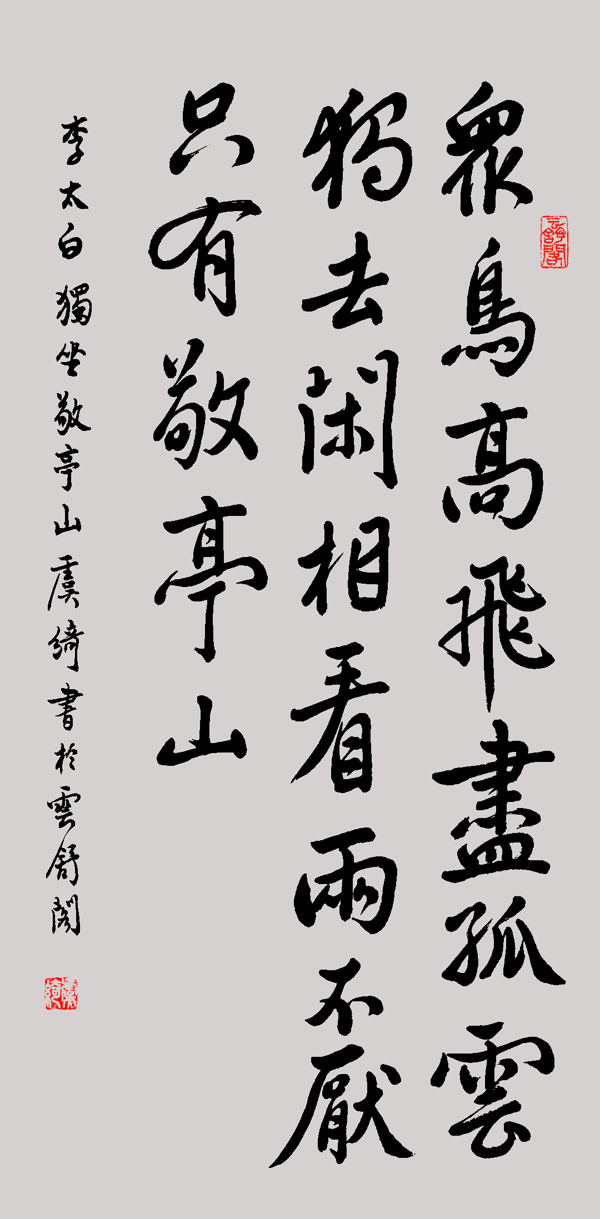 眾鳥高飛盡孤雲
獨去閑相看兩不厭
只有敬亭山
李太白獨坐敬亭山虞綺書於雲舒閣